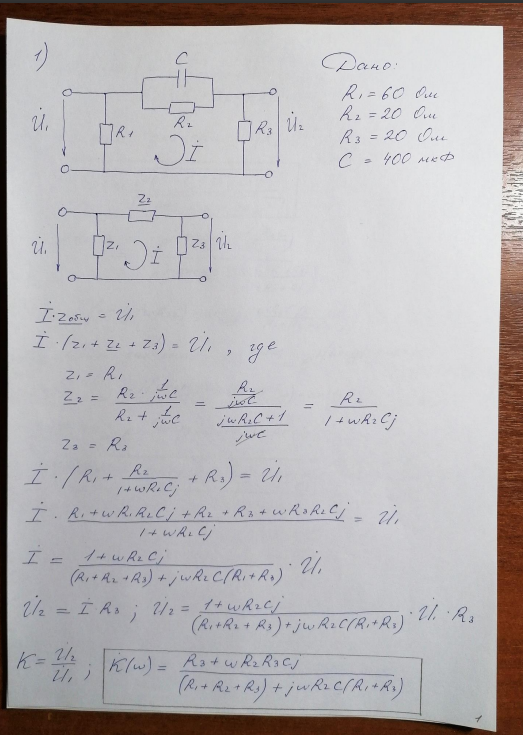 1)
Дано:
C
R1 = 60 Ом
R2 = 20 Ом
R3 = 20 Ом
C = 400 мкФ
U̇1
R1
R2
İ
R3
U̇2
Z2
U̇1
Z1
İ
Z3
U̇2
İ·Zобщ = U̇1
İ·(Z1 + Z2 + Z3) = U̇1 , где
Z1 = R1
Z2 = (R2 · 1/jωC)/(R2 + 1/jωC) = (R2/jωC)/((jωR2C + 1)/jωC) = R2/(1 + ωR2Cj)
Z3 = R3
İ · (R1 + R2/(1 + ωR2Cj) + R3) = U̇1
İ · (R1 + ωR1R2Cj + R2 + R3 + ωR3R2Cj)/(1 + ωR2Cj) = U̇1
İ = (1 + ωR2Cj)/((R1 + R2 + R3) + jωR2C(R1 + R3)) · U̇1
U̇2 = İ R3 ; U̇2 = (1 + ωR2Cj)/((R1 + R2 + R3) + jωR2C(R1 + R3)) · U̇1 · R3
K = U̇2/U̇1 ; K̇(ω) = (R3 + ωR2R3Cj)/((R1 + R2 + R3) + jωR2C(R1 + R3))
1